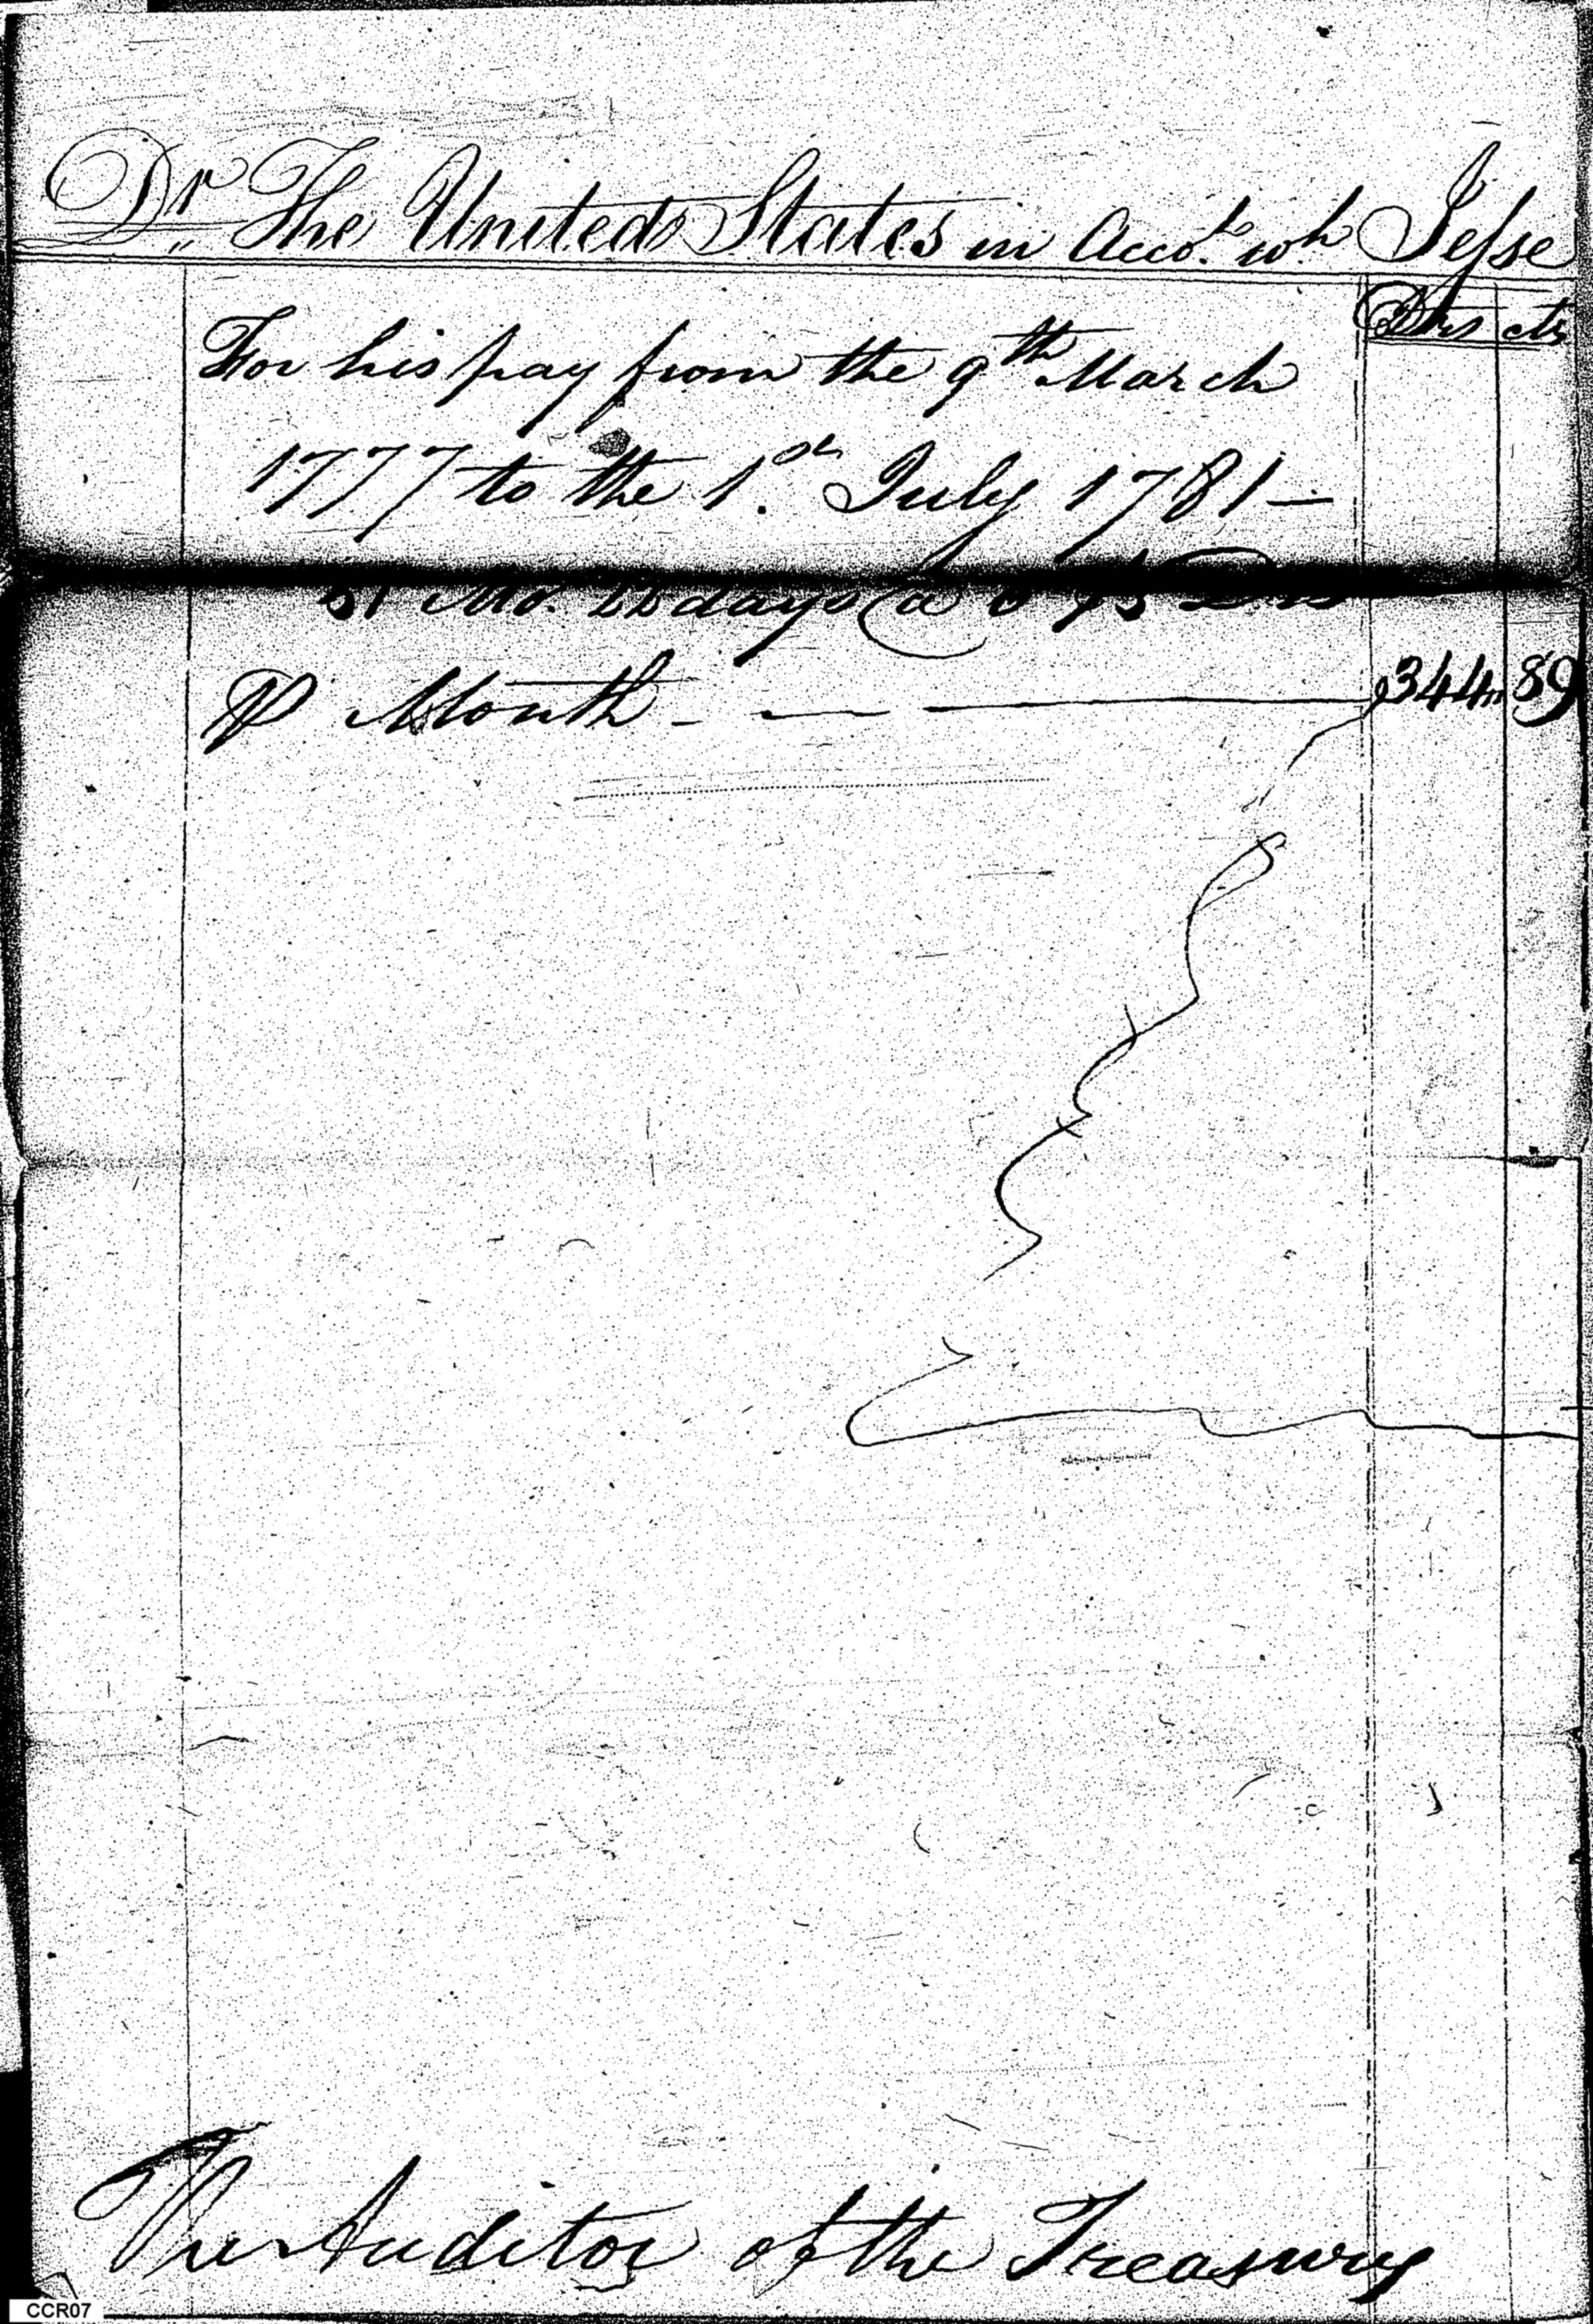 Dr. The United States in Acco.t wh Jesse
Drs cts
For his pay from the 9th March
1777 to the 1.st July 1781 —
51 Mo. 22 days @
P Month - — — 344 89
The Auditor of the Treasury
CCR07